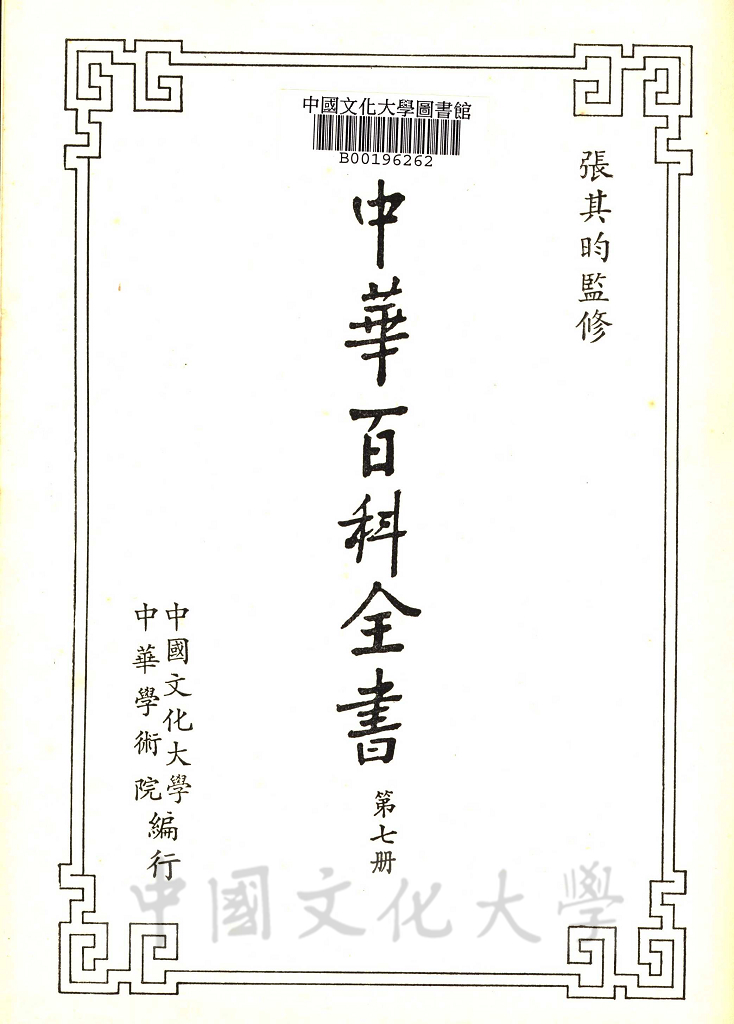 中國文化大學圖書館
B00196262
張其昀監修
中華百科全書
第七册
中國文化大學
中華學術院
編行
中國文化大學